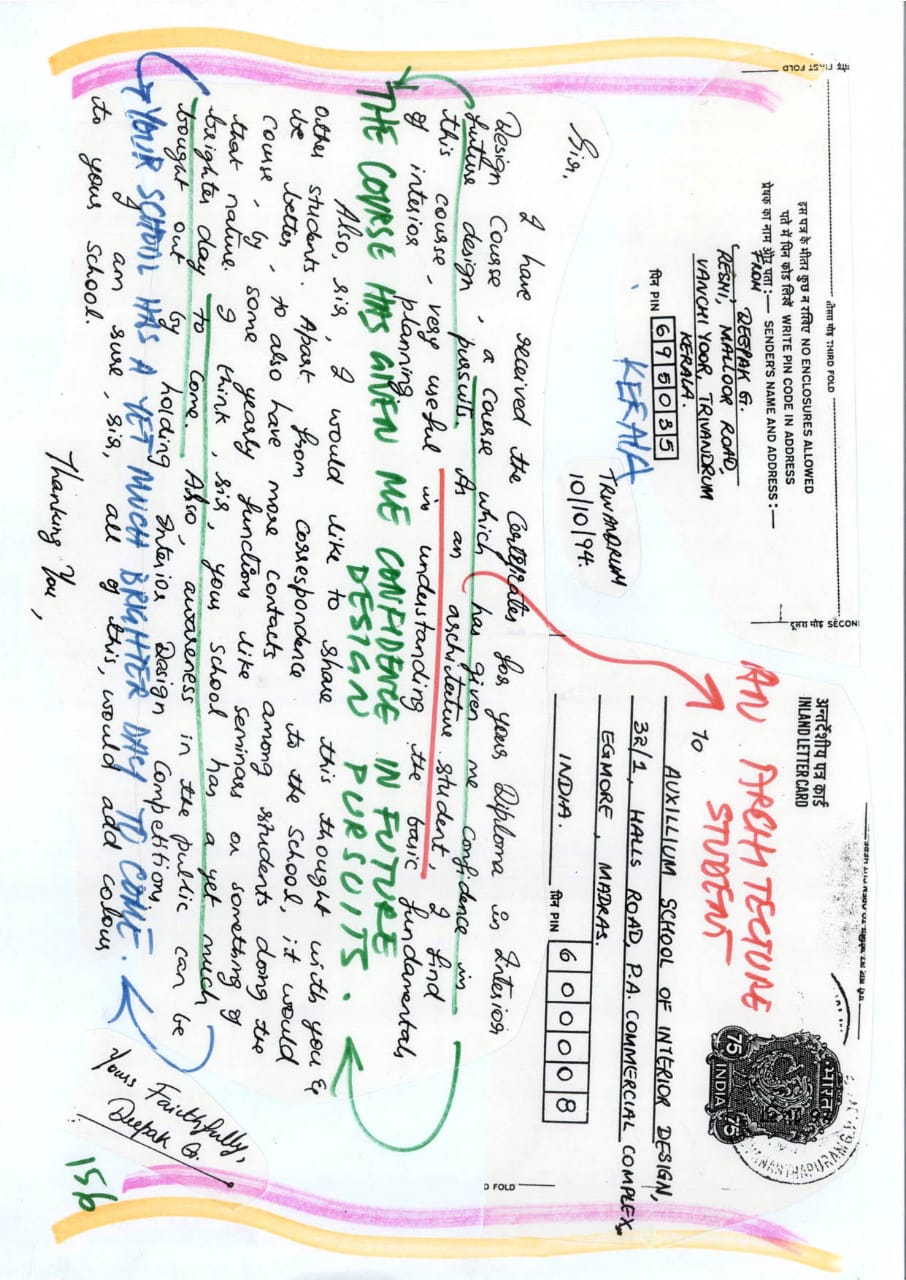 मोड़ FIRST FOLD
तीसरा मोड़ THIRD FOLD
इस पत्र के भीतर कुछ न रखिए NO ENCLOSURES ALLOWED
पते में पिन कोड लिखें WRITE PIN CODE IN ADDRESS
प्रेषक का नाम और पता:— SENDER'S NAME AND ADDRESS:—
FROM
DEEPAK G.
'RESHI', MALLOOR ROAD,
VANCHIYOOR, TRIVANDRUM
KERALA.
पिन PIN 695035
KERALA
दूसरा मोड़ SECON
अन्तर्देशीय पत्र कार्ड
INLAND LETTER CARD
AN ARCHITECTURE
STUDENT
भारत
75 75
INDIA
TO
AUXILLIUM SCHOOL OF INTERIOR DESIGN,
32/1, HALLS ROAD, P.A. COMMERCIAL COMPLEX
EGMORE, MADRAS.
INDIA. पिन PIN 600008
D FOLD
TRIVANDRUM
10/10/94.
Sir,
I have received the Certificates for your Diploma in Interior
Design Course, a course which has given me confidence in
future design pursuits. As an architecture student, I find
this course, very useful in understanding the basic fundamentals
of interior planning.
THE COURSE HAS GIVEN ME CONFIDENCE IN FUTURE
DESIGN PURSUITS.
Also, sir, I would like to share this thought with you &
other students. Apart from correspondence to the School, it would
be better, to also have more contacts among students doing the
course, by some yearly functions like seminars or something of
that nature. I think, sir, your school has a yet much
brighter day to come. Also, awareness in the public can be
bought out by holding Interior Design Competitions,
YOUR SCHOOL HAS A YET MUCH BRIGHTER DAY TO COME.
I am sure, sir, all of this, would add colour,
to your school.
Thanking You,
Yours Faithfully,
Deepak G.
156